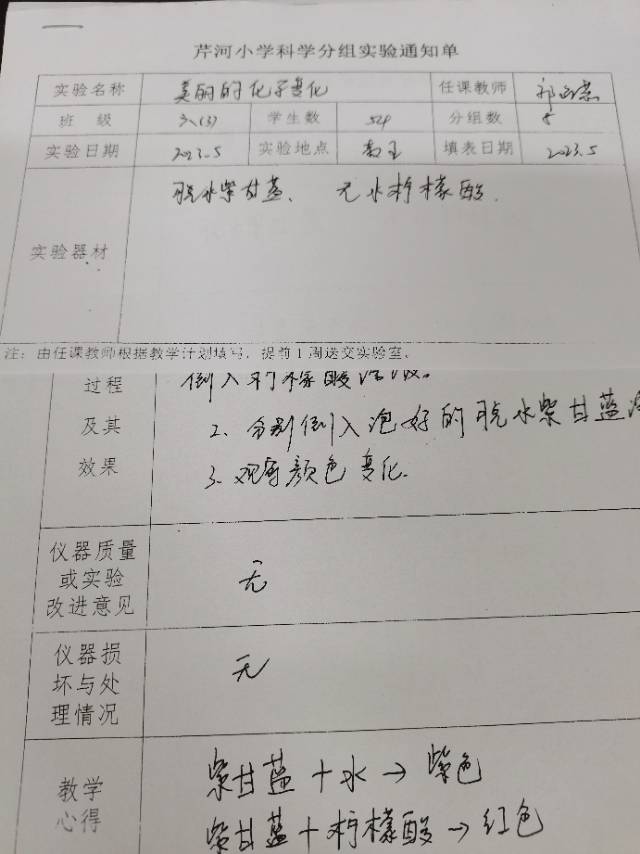 芹河小学科学分组实验通知单
实验名称 美丽的化学变化 任课教师
班 级 六(3) 学生数 54 分组数
实验日期 2023.5 实验地点 教室 填表日期 2023.5
实验器材 脱水紫甘蓝、 无水柠檬酸.
注:由任课教师根据教学计划填写,提前1周送交实验室。
过程 倒入柠檬酸
及其 2、分别倒入泡好的脱水紫甘蓝
效果 3、观察颜色变化.
仪器质量
或实验 无
改进意见
仪器损
坏与处 无
理情况
教学 紫甘蓝+水→紫色
心得 紫甘蓝+柠檬酸→红色